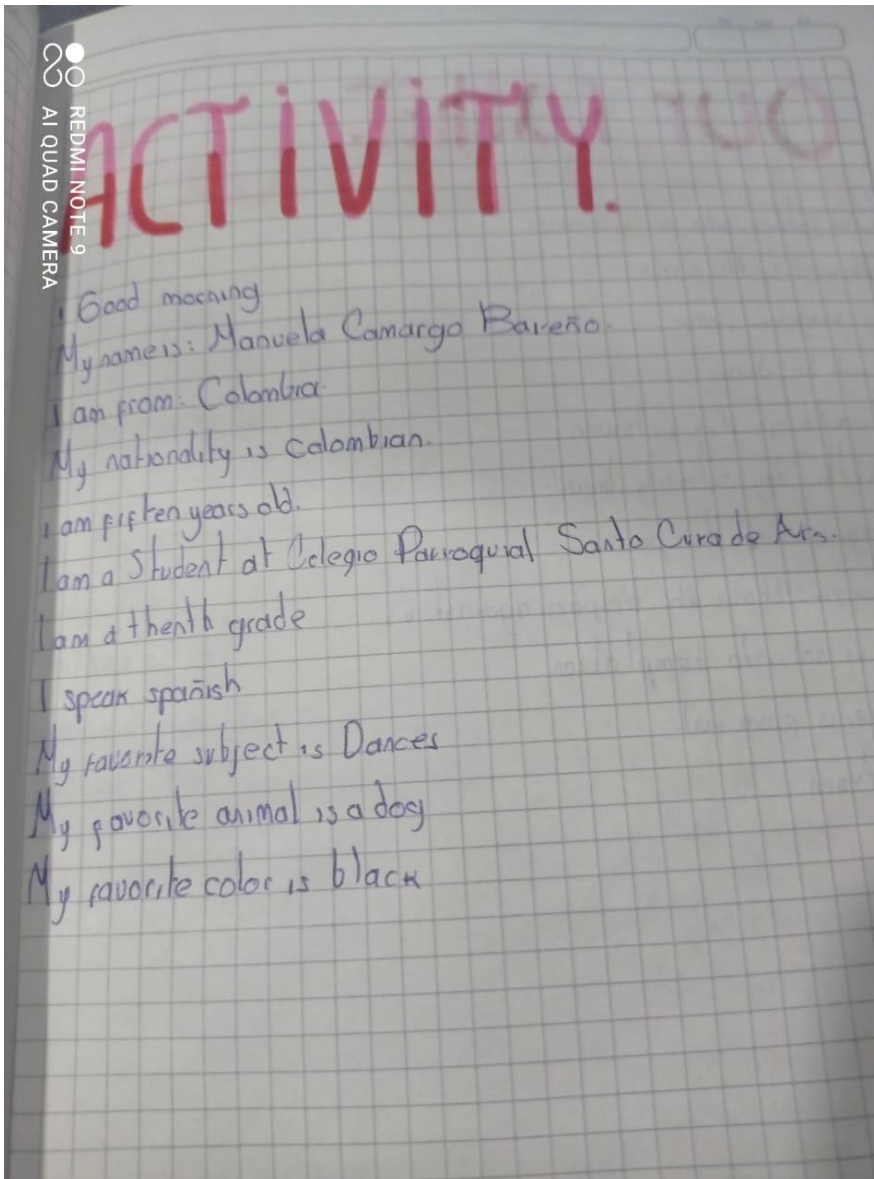 REDMI NOTE 9
AI QUAD CAMERA
ACTIVITY.
Good morning
My name is: Manuela Camargo Bareño.
I am from: Colombia.
My nationality is colombian.
I am fiften years old.
I am a Student at Colegio Parroquial Santo Cura de Ars.
I am a thenth grade
I speak spañish
My favorite subject is Dances
My favorite animal is a dog
My favorite color is black